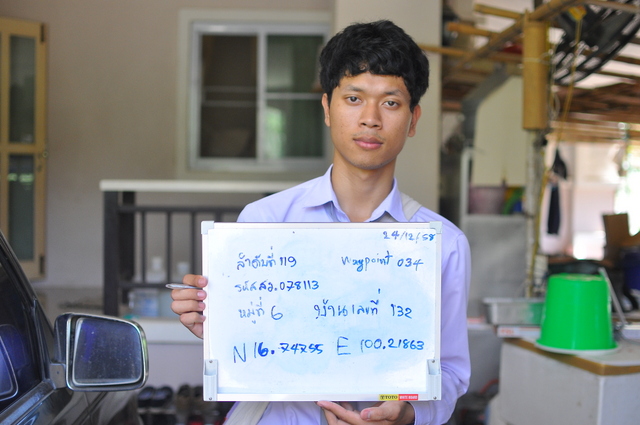 24/12/58
ลำดับที่ 119 waypoint 034
รหัสสว.078113
หมู่ที่ 6 บ้านเลขที่ 132
N 16.74755 E 100.21863